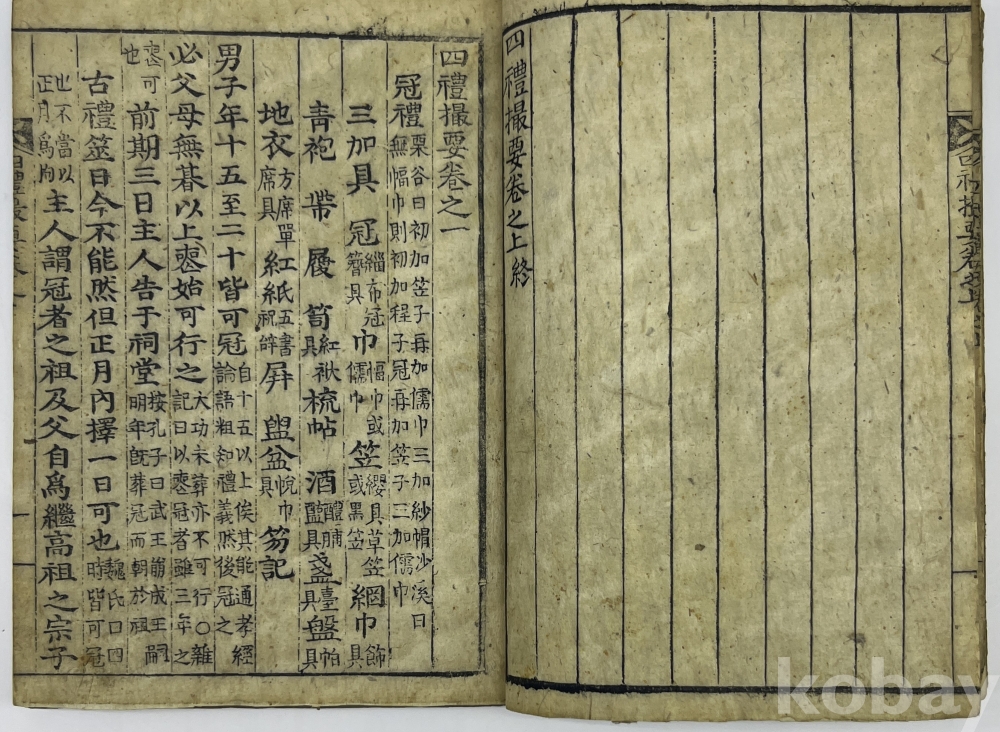 四禮撮要卷之上終
四禮撮要卷之一
冠禮 栗谷曰初加笠子再加儒巾三加紗帽沙溪曰無幅巾則初加程子冠再加笠子三加儒巾
三加具 冠 緇布冠簪具 巾 幅巾或儒巾 笠 纓具草笠或黑笠 網巾 飾具
靑袍 帶 履 笥 紅袱具 梳帖 酒 醴脯醢具 盞 臺具 盤 帕具
地衣 方席單席具 紅紙 五書祝辭 屛 盥盆 帨巾具 笏記
男子年十五至二十皆可冠 自十五以上俟其能通孝經論語粗知禮義然後冠之
必父母無朞以上喪始可行之 大功未葬亦不可行○雜記曰以喪冠者雖三年之
喪可也 前期三日主人告于祠堂 按孔子曰武王崩成王嗣明年旣葬冠而朝於祖
古禮筮日今不能然但正月內擇一日可也 魏氏曰四時皆可冠
也不當以正月爲拘 主人謂冠者之祖及父自爲繼高祖之宗子
kobay